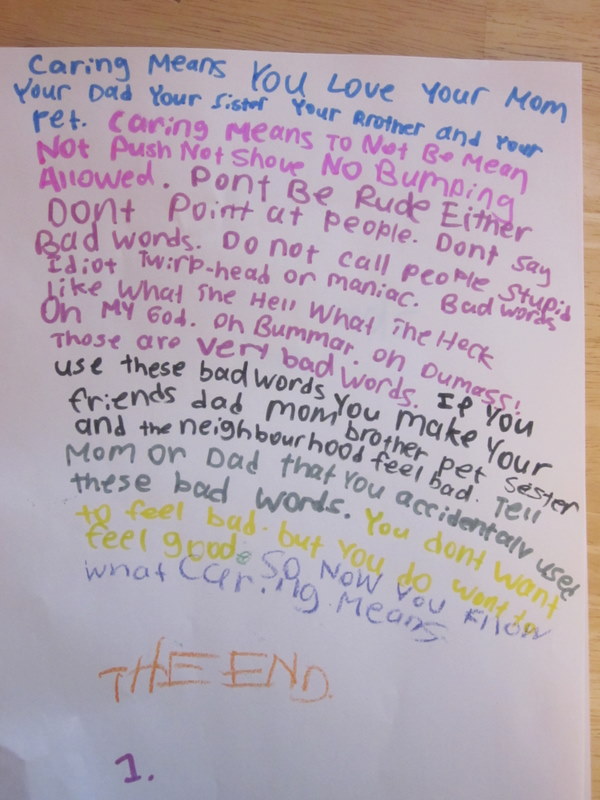 Caring Means YOU Love Your Mom
Your Dad Your Sister Your Brother and Your
Pet. Caring Means To Not Be Mean
Not Push Not Shove No Bumping
Allowed. Dont Be Rude Either
Dont Point at people. Dont say
Bad words. Do not call people stupid
Idiot Twirp-head or maniac. Bad words
Like What The Hell What The Heck
Oh My God. Oh Bummar. oh Dumass!
Those are very bad words. If You
use these bad words You make Your
friends dad mom brother pet sester
and the neighbourhood feel bad. Tell
Mom or Dad that You accidentaly used
these bad words. You dont want
to feel bad. but You do want to
feel good. So Now You Know
what Caring Means
THE END.
1.